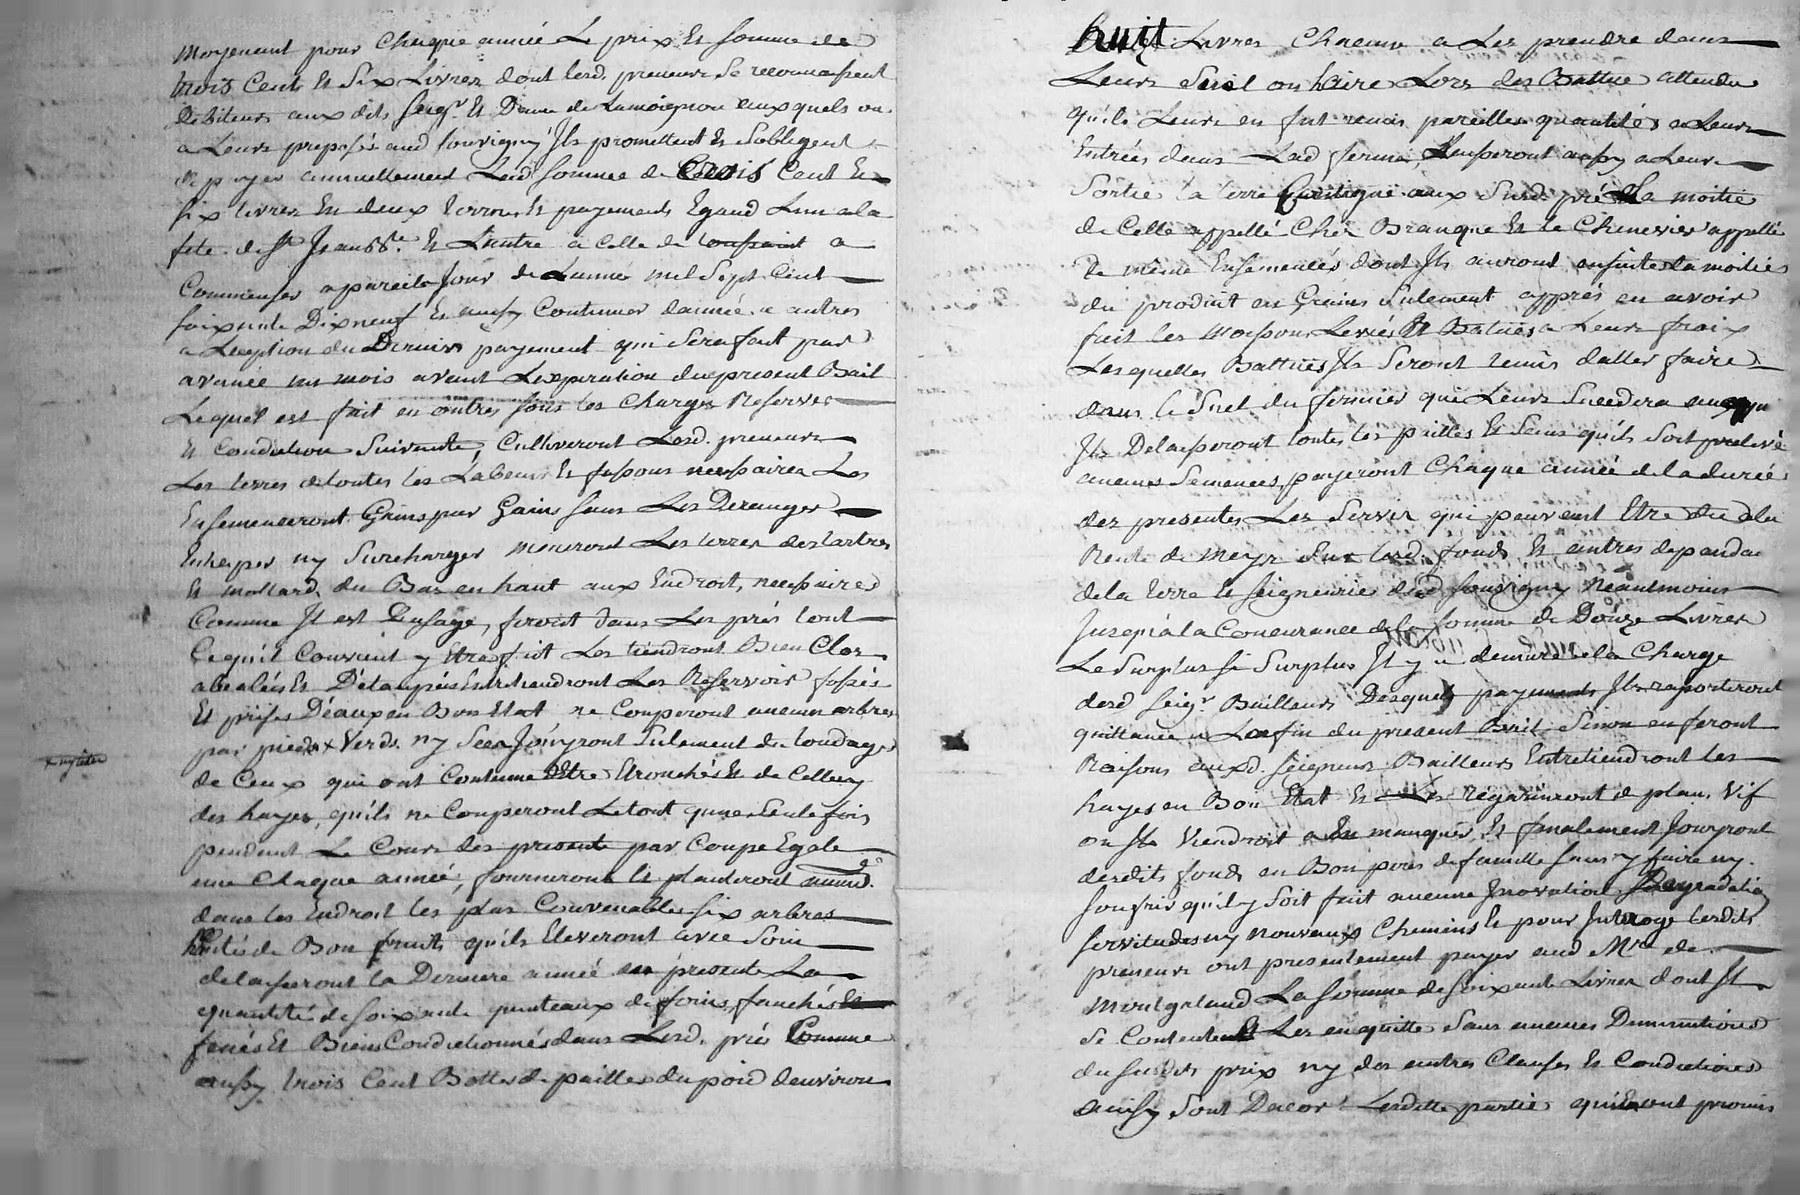 moyenant pour Chaque année Le prix Et somme de
trois Cent Et Six Livres dont lesd. preneurs Se reconnaissent
Debiteurs aux dits seigr. Et Dame de Lamoignon auxquels ou
a Leurs preposés aud souvigny Ils promettent Et Sobligent
de payer annuellement Lad somme de trois Cent Et
six livres En deux termes Et payements Egaud Lun a la
fete de St Jean Bte. Et Lautre a Celle de toussaint a
Commenser a pareils Jour de Lannée mil Sept Cent
soixante Dixneuf Et ainsy Continuer dannée a autres
a Leception du Dernier payement qui Sera fait par
avance un mois avant Lexpiration du present Bail
Lequel est fait en outres sous les Charges Reserves
Et Condiction Suivante, Cultiveront Lesd. preneurs
Les terres de toutes les Labeurs Et fassons nessaires Les
Ensemenceront Grins par Gains sans Les Deranger
ny Surcharger meneront Les terres des tartres
Et mollard du Bas en haut aux Endroit, nessaires
Comme Il est Dusage, feront dans Les prés tout
Ce qu'il Convient y Etre fait Les tiendront Bien Clos
Entretiendront Les Reservoir fossés
Et prises D'eaux en Bon Etat ne Couperont aucuns arbres
par pieds x Verds. ny Secs Joüyront Sulement du tondage
de Ceux qui ont Coutume dEtre Etronchés Et de Celluy
des hayes, qu'ils ne Couperont Letout qune Seule fois
pendant Le Cours des presente par Coupe Egale
une Chaque année, fourniront Et planteront
dans les Endroit les plus Convenables six arbres
Entés de Bon fruits qu'ils Eleveront avec Soin
delasseront la Derniere année des presente La
quantité de soixante quinteaux de foins fauchés Et
fenés Et Biens Condictionnés dans Lesd. prés Comme
aussy trois Cent Bottes de pailles du poid denviron
x ny secs
huit Livres Chacune a Les prendre dans
Leurs Suel ou haire Lors des Battue attendu
qu'ils Leurs en fut remis pareilles quantités a Leurs
Entrées dans Lad ferme, Lausseront aussy a Leurs
Sortie la terre Contigue aux Susd. pré La moitié
de Celle appellé Ché Branque Et le Chenevier appellé
de même Ensemencés dont Ils auront ensuite la moities
du produit en Grains Sulement apprés en avoir
fait les moissons Levées Et Batues a Leurs fraix
Lesquelles Battues Ils Seront tenus daller faire
dans le Suel du fermier qui Leurs Sucedera
Ils Delasseront toutes les pailles Et Sans quils Soit prelevé
aucunes Semences, payeront Chaque année de la durée
des presentes Les Servis qui peuvent Etre du a la
Rente de Sur lesd. fonds Et autres dependac
de la terre Et seigneurie dud souvigny Neantmoins
Jusqua la Concurance de la somme de Douze Livres
Le Surplus si Surplus Il y a demure a la Charge
desd seigr Bailleurs Desquels payements Ils raporteront
quittance a Lafin du present Bail Sinon en feront
Raisons auxd. seigneurs Bailleurs Entretiendront Les
hayes en Bon Etat Et Les regarniront de plan Vif
ou Ils Viendroit a En manquer Et finalement Jouyront
desdits fonds en Bon peres de famille sans y faire ny
soufrir qu'il y Soit fait aucune Inovation Degradation
servitudes ny nouveaux Chemins Et pour Intrage lesdits
preneurs ont presentement payer aud Mr de
montgaland La somme de soixante Livres dont Il
Se Contente Et Les en quitte Sans aucunes Diminutions
du susdit prix ny des autres Clauses Et Condictions
ainsy Sont Dacor Lesdittes parties qui ont promis